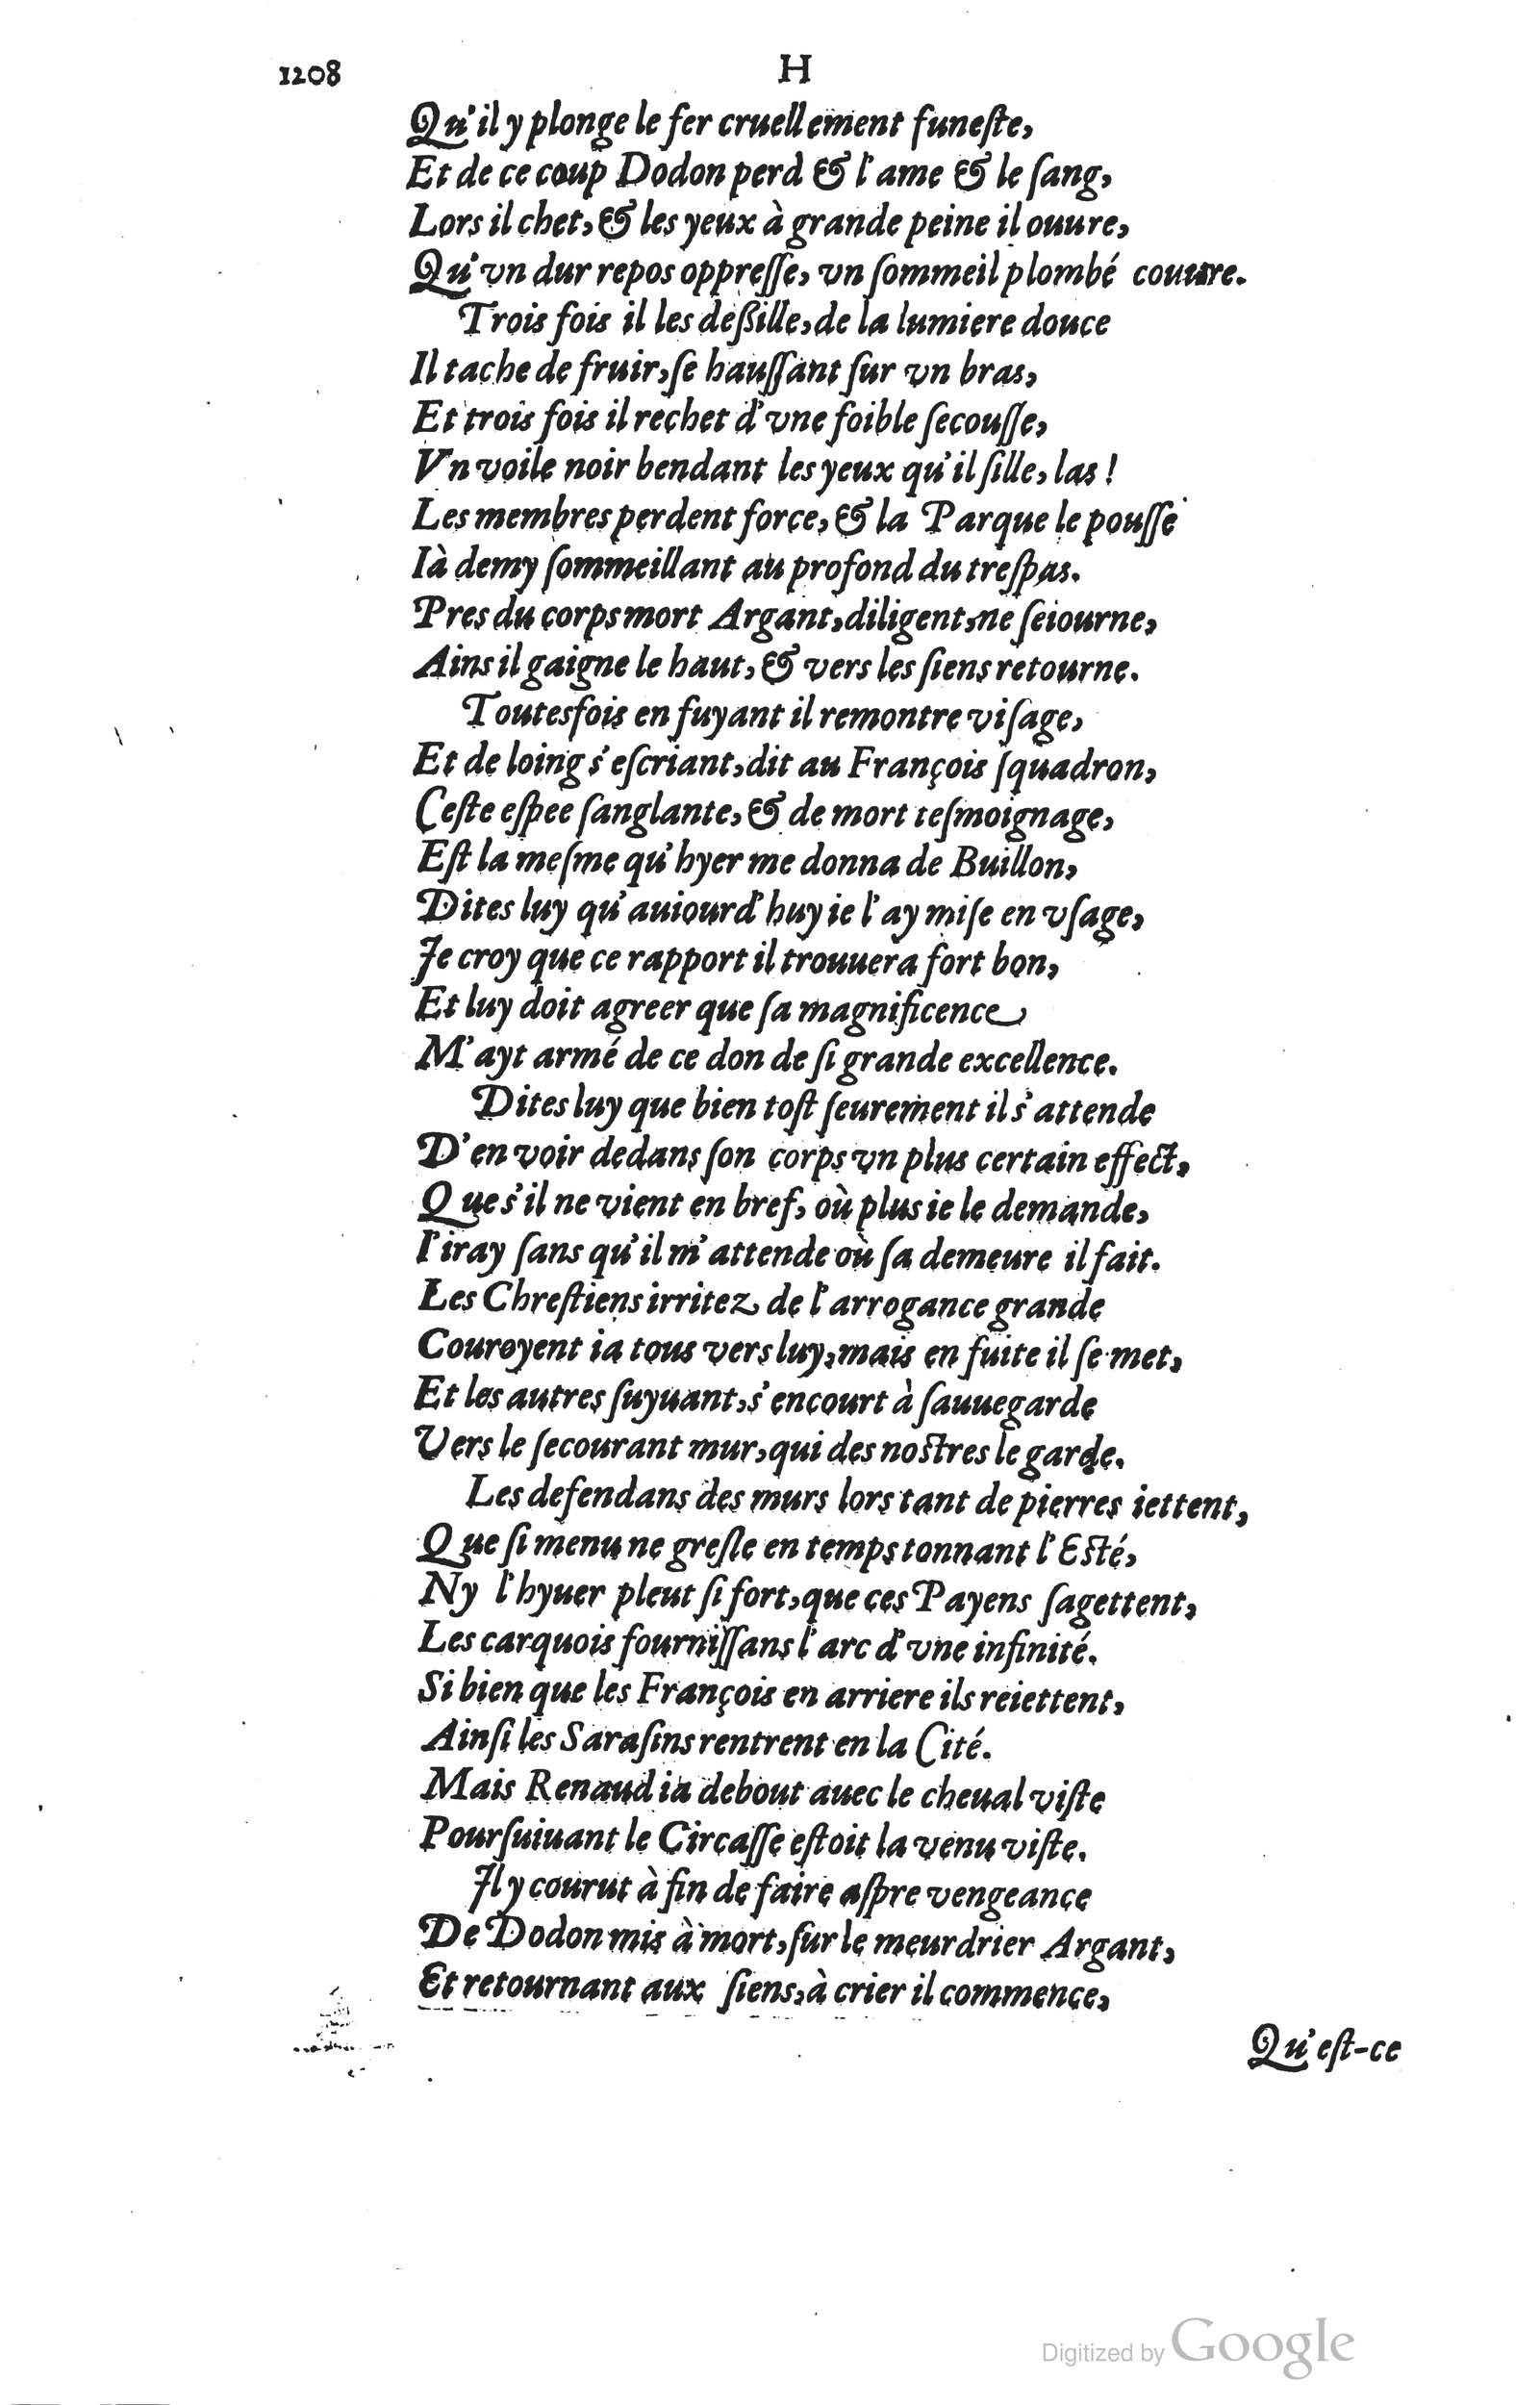 1208
H
Qu'il y plonge le fer cruellement funeſte,
Et de ce coup Dodon perd & l'ame & le ſang,
Lors il chet, & les yeux à grande peine il ouure,
Qu'vn dur repos oppreſſe, vn ſommeil plombé couure.
Trois fois il les deßille, de la lumiere douce
Il tache de fruir, ſe hauſſant ſur vn bras,
Et trois fois il rechet d'vne foible ſecouſſe,
Vn voile noir bendant les yeux qu'il ſille, las!
Les membres perdent force, & la Parque le pouſſe
Ià demy ſommeillant au profond du treſpas.
Pres du corps mort Argant, diligent, ne ſeiourne,
Ains il gaigne le haut, & vers les ſiens retourne.
Toutesfois en fuyant il remontre viſage,
Et de loing s'eſcriant, dit au François ſquadron,
Ceſte eſpee ſanglante, & de mort teſmoignage,
Eſt la meſme qu'hyer me donna de Buillon,
Dites luy qu'auiourd'huy ie l'ay miſe en vſage,
Je croy que ce rapport il trouuera fort bon,
Et luy doit agreer que ſa magnificence
M'ayt armé de ce don de ſi grande excellence.
Dites luy que bien toſt ſeurement il s'attende
D'en voir dedans ſon corps vn plus certain effect,
Que s'il ne vient en bref, où plus ie le demande,
I'iray ſans qu'il m'attende où ſa demeure il fait.
Les Chreſtiens irritez de l'arrogance grande
Couroyent ia tous vers luy, mais en fuite il ſe met,
Et les autres ſuyuant, s'encourt à ſauuegarde
Vers le ſecourant mur, qui des noſtres le garde.
Les defendans des murs lors tant de pierres iettent,
Que ſi menu ne greſle en temps tonnant l'Eſté,
Ny l'hyuer pleut ſi fort, que ces Payens ſagettent,
Les carquois fourniſſans l'arc d'vne infinité.
Si bien que les François en arriere ils reiettent,
Ainſi les Saraſins rentrent en la Cité.
Mais Renaud ia debout auec le cheual viſte
Pourſuiuant le Circaſſe eſtoit la venu viſte.
Il y courut à fin de faire aſpre vengeance
De Dodon mis à mort, ſur le meurdrier Argant,
Et retournant aux ſiens, à crier il commence,
Qu'eſt-ce
Digitized by Google